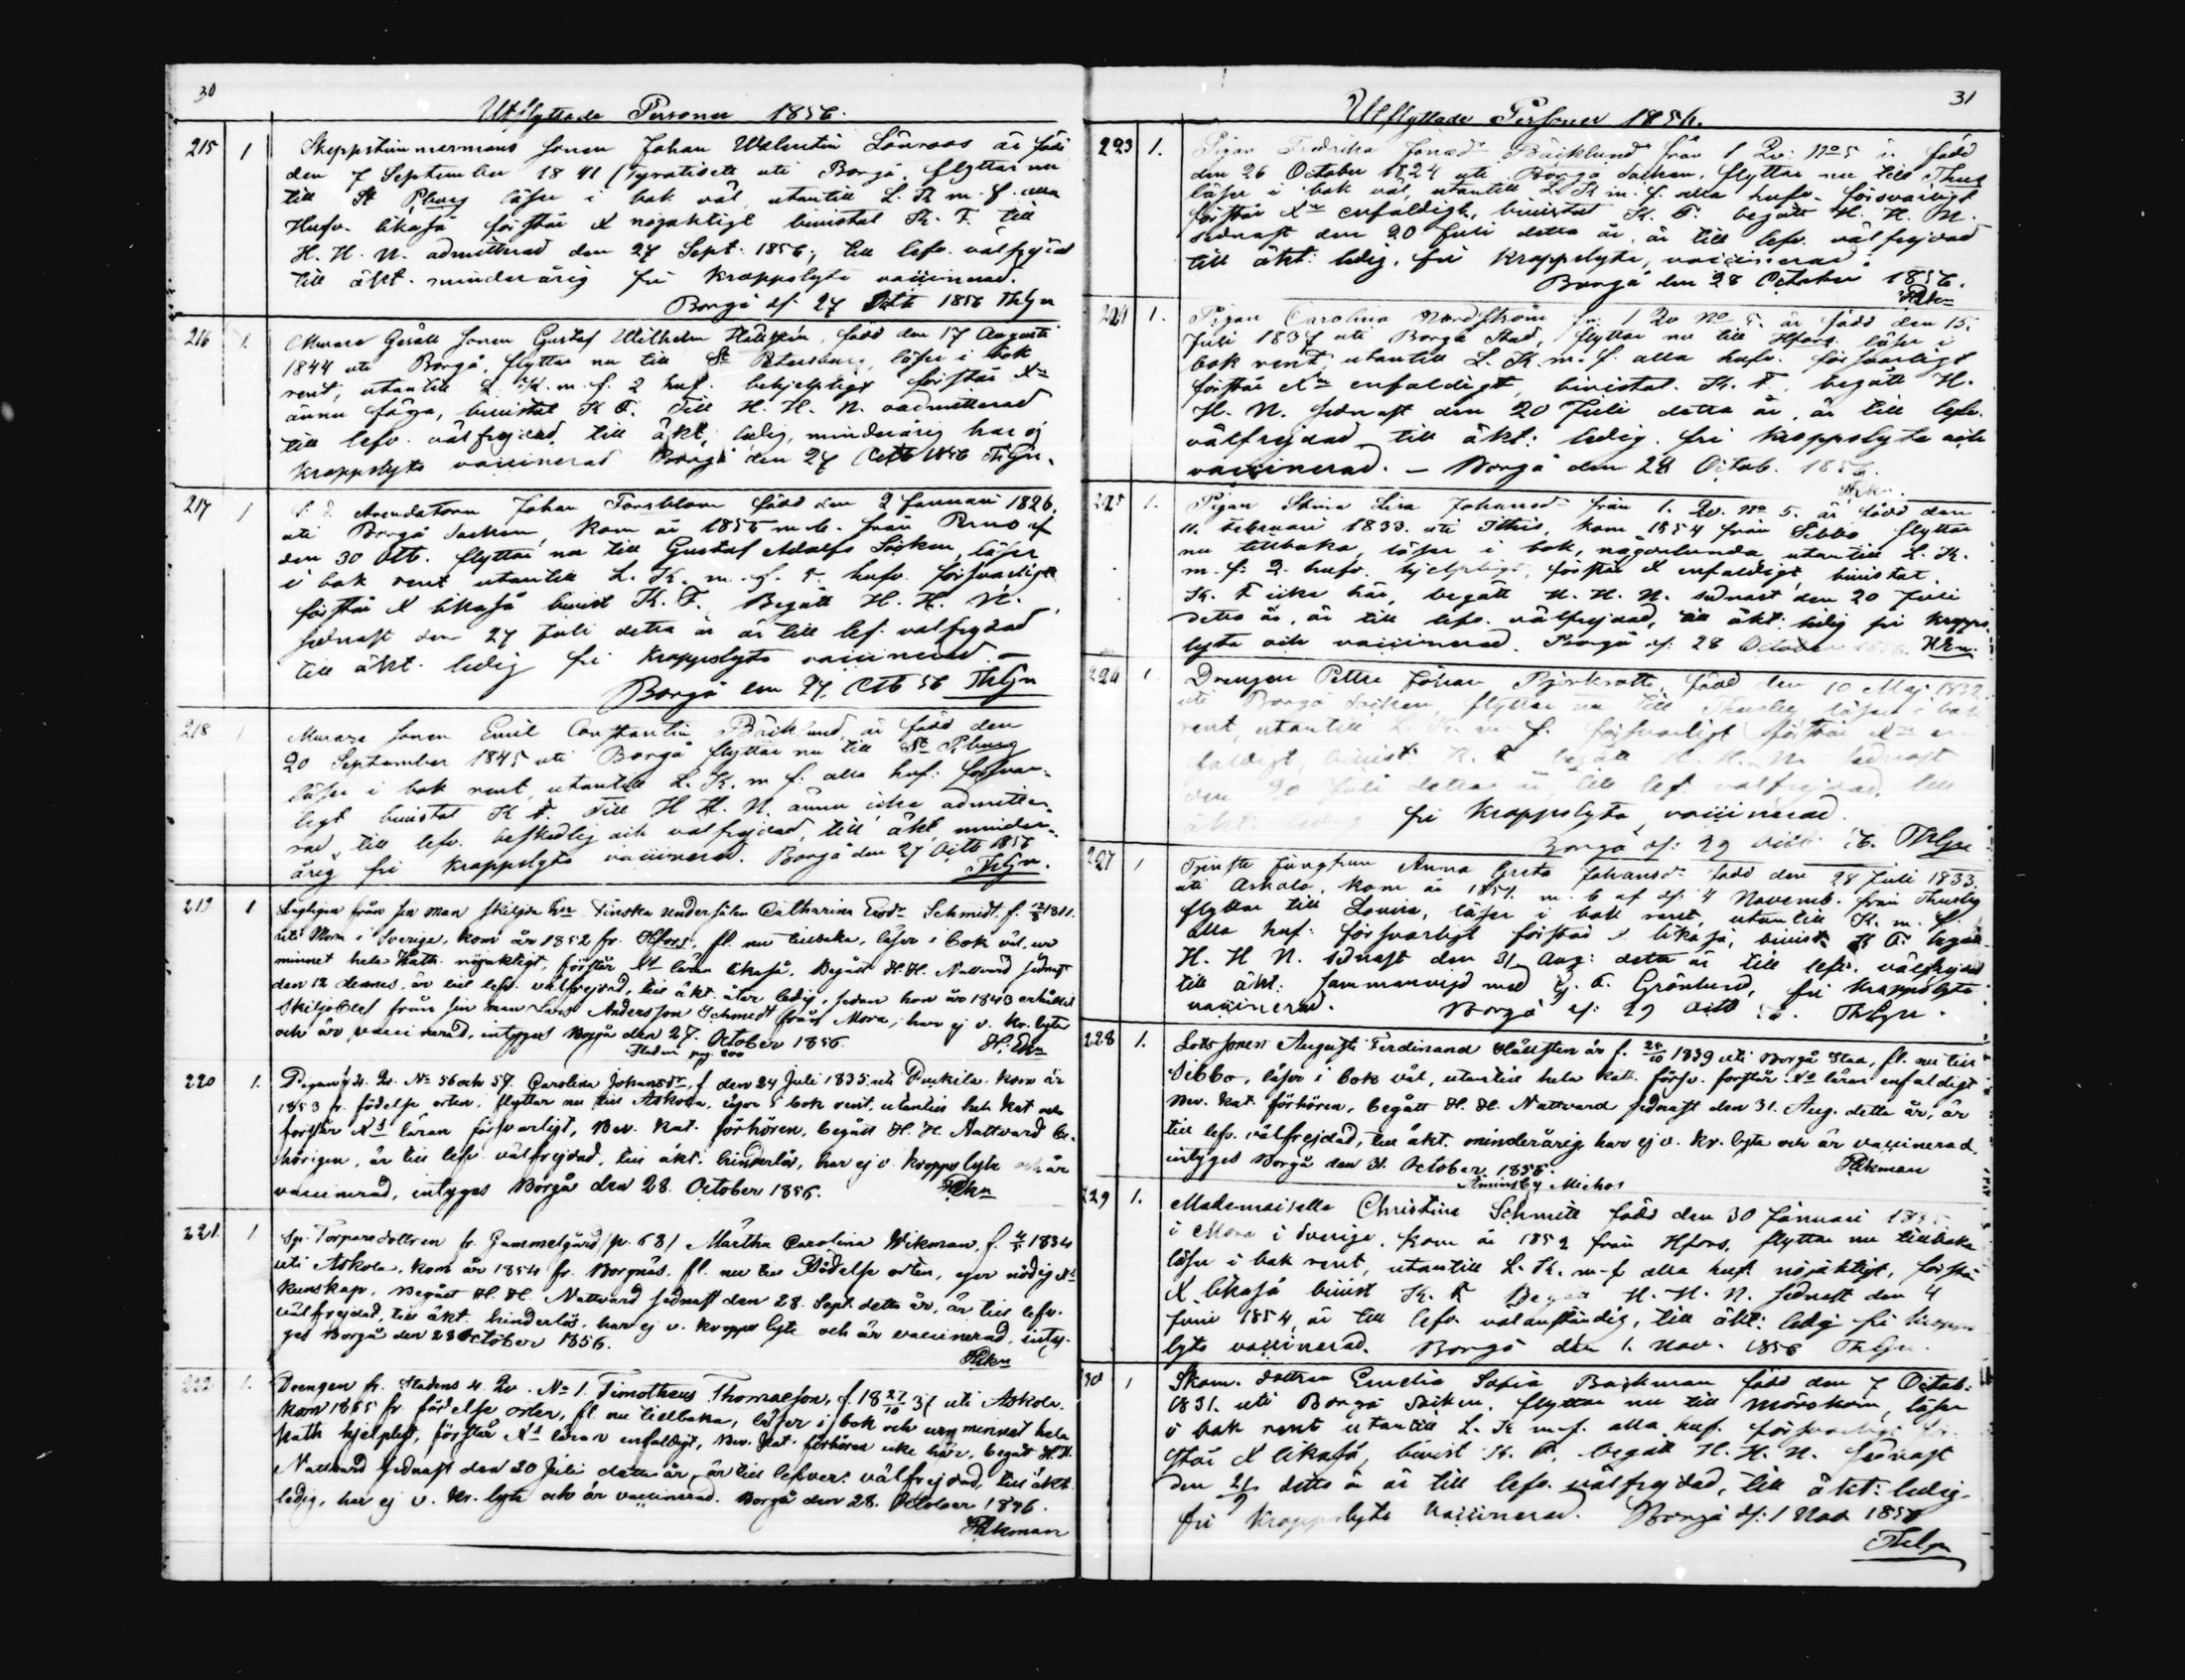 30
Utflyttade Personer 1856.
215 1 Skeppstimmermans sonen Johan Walentin Lönroos är född
den 7 September 1841 (fyratioett uti Borgå, flyttar nu
till St Pburg läser i bok väl, utantill L. K. m. f. alla
Hufv. likaså förstår X nöjaktigt bivistat K. F. till
H. H. N. admitterad den 27 Sept. 1856, till lefv. välfrejdad
till äkt. minderårig fri kroppslyte vaccinerad.
Borgå d: 27 Octb 1856 ThLgn
216 1. Murare Gesäll Sonen Gustaf Wilhelm född den 17 Augusti
1844 uti Borgå, flyttar nu till St Petersburg, läser i bok
rent, utantill L. K. m. f. 2 huf. behjelpligt förstår Xn
ännu föga, bivistat K F. Till H. H. N. oadmitterad
till lefv. välfrejdad, till äkt. ledig, minderårig har ej
kroppslyte vaccinerad Borgå den 27 Octb 1856 ThLgn.
217 1 Arendatorn Johan Forsblom född den 2 Januari 1826,
uti Borgå Socken, kom år 1855 m. b. från Perno af
den 30 Octb. flyttar nu till Gustaf Adolfs Socken, läser
i bok rent utantill L. K. m. f. 5. hufv. försvarligt
förstår X likaså bivist K. F. Begått H. H. N.
sednast den 27 Juli detta år är till lef. välfrejdad
till äkt. ledig fri kroppslyte vaccinerad. —
Borgå den 27 Octb 56 ThLgn
218 1 Murare Sonen Emil Constantin Bäcklund, är född den
20 September 1845 uti Borgå flyttar nu till St Pburg
läser i bok rent, utantill L. K. m f: alla huf: försvar-
ligt bivistat K F. Till H H. N. ännu icke admitte-
rad, till lefv. beskedlig och välfrejdad, till äkt, minder-
årig fri kroppslyte vaccinerad. Borgå den 27 Octb 1856
ThLgn.
219. 1 Lagligen från sin man skiljda Finska undersåten Catharina Ersdr Schmidt, f. 1811.
uti Mora i Sverige, kom år 1852 fr. Hfors, fl. nu tillbaka, läser i bok väl, ur
minnet hela Kath. nöjaktigt, förstår Xd läran likaså. Begått H. H. Nattvard sednast
den 12 dennes, är till lefv. välfrejdad, till äkt. åter ledig, sedan hon år 1843 erhållit
Skiljobref från sin man Lars Andersson Schmidt från Mora, har ej v. kr. lyte
och är vaccinerad, intygas Borgå den 27. October 1856.
Staden pag. 200
220 1. Pigan 4 Qv. No 56 och 57. Carolina Johansdr, f. den 24 Juli 1835 uti Puckila. kom år
1853 fr. födelse orten, flyttar nu till Askola, läser i bok rent, utantill hela Kat och
förstår Xd läran försvarligt, Bev. Kat. förhören, begått H. H. Nattvard be-
hörigen, är till lefv. välfrejdad, till äkt. hinderlös, har ej v. kroppslyte och är
vaccinerad, intygas Borgå den 28. October 1856.
221. 1 Sp. Torparedottren fr. Gammelgård (p. 68) Märtha Carolina Wikman, f. 1834
uti Askola, kom år 1854 fr. Borgnäs, fl. nu till Födelse orten, eger nödig Xd
kunskap, Begått H. H. Nattvard sednast den 28. Sept. detta år, är till lefv.
välfrejdad, till äkt. hinderlös, har ej v. kroppslyte och är vaccinerad, inty-
gas Borgå den 28 October 1856.
222 1. Drengen fr. Stadens 4. Qv. No 1. Timotheus Thomasson, f. 18 27/10 37 uti Askola.
kom 1855 fr födelse orten, fl. nu tillbaka, läser i bok och ur minnet hela
Kath hjelpligt, förstår Xd läran enfaldigt, Bev. Kat. förhören icke här, begått H. H.
Nattvard sednast den 20 Juli detta år, är till lefver: välfrejdad, till äkt.
ledig, har ej v. kr. lyte och är vaccinerad. Borgå den 28. October 1856.
31
Utflyttade Personer 1856.
223 1. Pigan Fredrika Jonasdr Bäcklund från 1 Qv: No 5 är född
den 26 October 1824 uti Borgå Socken, flyttar nu till Thusby
läser i bok väl, utantill L. K. m. f. alla hufv. försvarligt
förstår Xn enfaldigt, bivistat K. F. begått H. H. N.
sednast den 20 Juli detta år, är till lefv. välfrejdad
till äkt: ledig, fri kroppslyte, vaccinerad.
Borgå den 28 October 1856.
224 1. Pigan Carolina Nordström fr. 1 Qv No 5. är född den 15.
Juli 1837 uti Borgå Stad, flyttar nu till Hfors. läser i
bok rent, utantill L. K. m. f. alla hufv. försvarligt
förstår Xn enfaldigt, bivistat. K. F. begått H.
H. N. sednast den 20 Juli detta år, är till lefv.
välfrejdad till äkt: ledig. fri kroppslyte och
vaccinerad. — Borgå den 28 Octob. 1856.
225 1. Pigan Stina Lisa Johansdr från 1. Qv. No 5. är född den
11. Februari 1833. uti Sibbo, kom 1854 från Sibbo flyttar
nu tillbaka, läser i bok, någorlunda utantill L. K.
m. f: 2. hufv. hjelpligt, förstår X enfaldigt, bivistat.
K. F icke här, begått H. H. N. sednast den 20 Juli
detta år, är till lefv. välfrejdad, till äkt: ledig fri kropps
lyte och vaccinerad. Borgå d: 28 October
226 1 Drengen Petter Johan Björkrath, född den 10 Maj 1832
uti Borgå Socken, flyttar nu till Thusby läser i bok
rent, utantill L. K. m. f. försvarligt förstår Xn en
faldigt, bivist K. F begått H. H. N. sednast
den 20 Juli detta år till lef välfrejdad, till
äkt: ledig fri kroppslyte, vaccinerad.
Borgå d: 29 Octb: 56. ThLgn
227 1 Tjenste Jungfrun Anna Greta Johansdr född den 28 Juli 1833.
uti Askola, kom år 1854. m. b af d: 4 Novemb. från Thusby
flyttar till Lovisa, läser i bok rent, utantill K. m. f.
alla huf: försvarligt förstår X likaså, bivist K F. begått
H. H N. sednast den 31 Aug: detta år till lefv. välfrejdad
till äkt: sammanvigd med G. A. Grönlund, fri kroppslyte
vaccinerad. Borgå d: 29 Octb 56. ThLgn.
228 1. Lots sonen Augusti Ferdinand Hällsten är f. 25/10 1839 uti Borgå Stad, fl. nu till
Sibbo, läser i bok väl, utantill hela kat. försv. förstår Xd läran enfaldigt
Bev. Kat. förhören, begått H. H. Nattvard sednast den 31. Aug. detta år, är
till lefv. välfrejdad, till äkt. minderårig har ej v. kr. lyte och är vaccinerad.
intygas Borgå den 31. October 1856.
229 1. Mademoiselle Christina Schmitt född den 30 Januari
i Mora i Sverige, kom år 1852 från Hfors, flyttar nu tillbaka
läser i bok rent, utantill L. K. m-f alla huf. nöjaktigt, förstår
X likaså bivist K. F Begått H. H. N. sednast den 4
Juni 1854, är till lefv välanständig, till äkt: ledig fri kropps
lyte vaccinerad. Borgå den 1. Nov. 1856 ThLgn.
30 1 Skom. dottren Emelia Sofia Backman född den 7 Octob:
1831. uti Borgå Socken, flyttar nu till Mörskom, läser
i bok rent utantill L. K m f. alla huf. försvarligt för
står X likaså, bivist K. F, begått H. H. N. sednast
den detta år är till lefv. välfrejdad, till äkt: ledig
fri kroppslyte vaccinerad. Borgå d: 1 Nov 1856
ThLgn